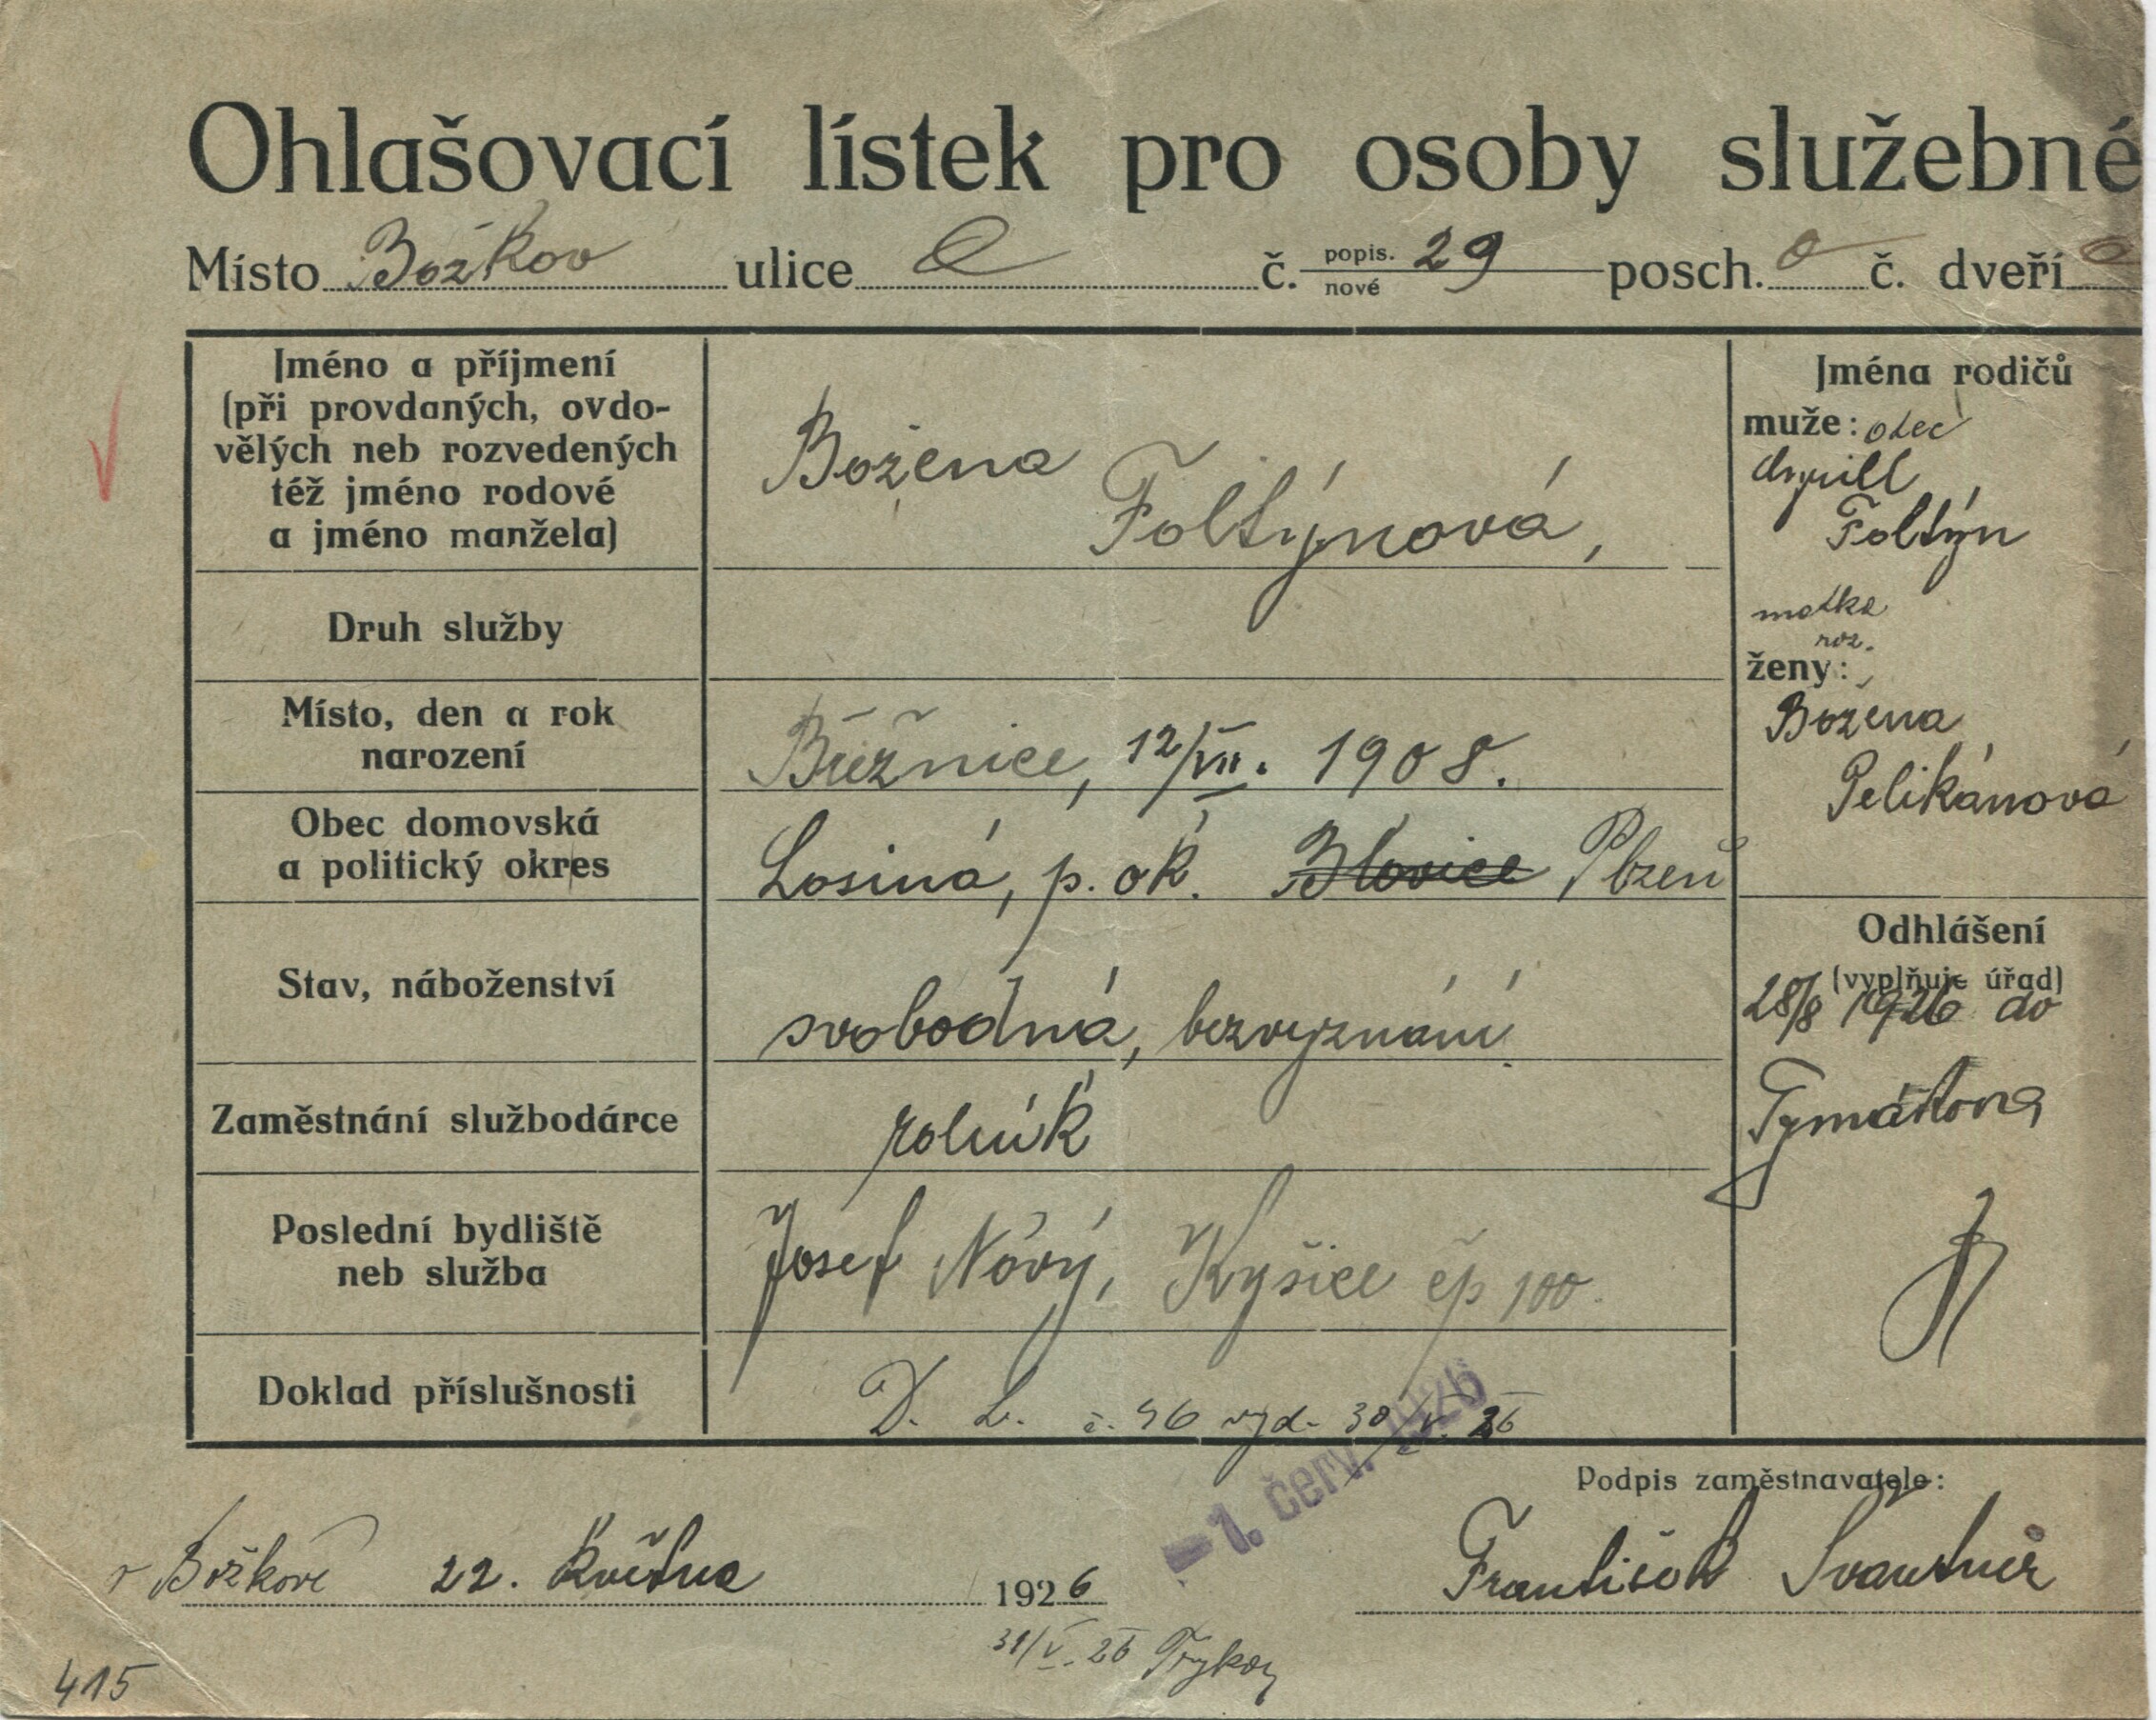 Ohlašovací lístek pro osoby služebné
Místo Božkov ulice 0 č. popis. 29 nové posch. 0 č. dveří 0
Jméno a příjmení
(při provdaných, ovdo-
vělých neb rozvedených
též jméno rodové
a jméno manžela)
Božena
Foltýnová,
Druh služby
Místo, den a rok
narození
Břežnice, 12/VII. 1908.
Obec domovská
a politický okres
Losiná, p. ok. Blovice Plzeň
Stav, náboženství
svobodná, bezvyznání.
Zaměstnání službodárce
rolník
Poslední bydliště
neb služba
Josef Nový, Kyšice čp 100.
Doklad příslušnosti
D. L. č. 46 vyd. 30 V. 26
Jména rodičů
muže: otec
Foltýn
matka
roz.
ženy:
Božena
Pelikánová
Odhlášení
(vyplňuje úřad)
28/8 1926 do
– 1. červ. 1926
Podpis zaměstnavatele:
v Božkově 22. května 1926
František
31/V. 26
415